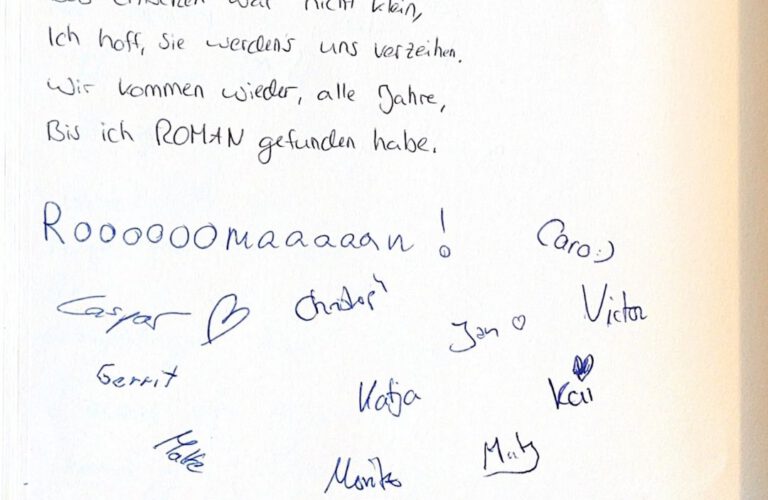 nicht klein,
Ich hoff, Sie werden's uns verzeihen.
Wir kommen wieder, alle Jahre,
Bis ich ROMAN gefunden habe.
Roooooomaaaaan!
Caro :)
Caspar
Christoph
Jan
Victor
Gerrit
Katja
Kai
Malte